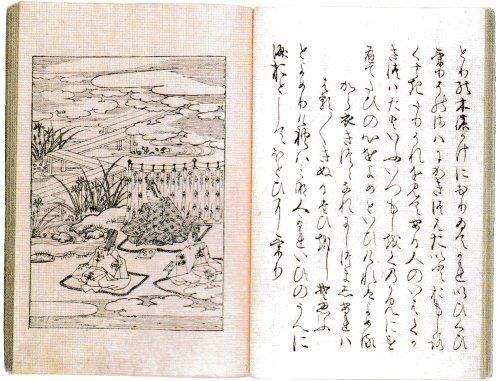 とりの木のかけにおりゐてかれいひくひ
けりその沢にかきつはたいとおもしろ
くさきたりそれを見てある人のいはくか
きつはたといふいつもしを句のかみにす
へてたひの心をよめといひけれはよめる
から衣きつゝなれにしつましあれは
はる〱きぬるたひをしそ思ふ
とよめりけれはみな人かれいひのうへに
涙おとしてほとひにけり